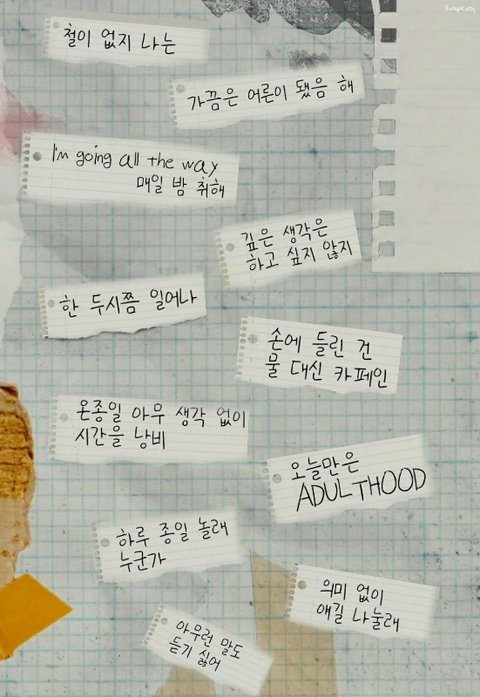 RosyMisty
철이 없지 나는
가끔은 어른이 됐음 해
I'm going all the way
매일 밤 취해
깊은 생각은
하고 싶지 않지
한 두시쯤 일어나
손에 들린 건
물 대신 카페인
온종일 아무 생각 없이
시간을 낭비
오늘만은
ADULTHOOD
하루 종일 놀래
누군가
의미 없이
얘길 나눌래
아무런 말도
듣기 싫어